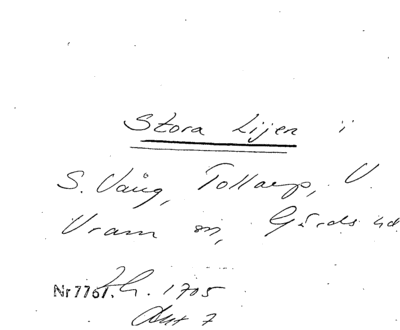 Stora Lijen i
S. Vång, Tollarp, V.
Vram sn, Gärds hd.
Nr 7767. Lh. 1705
Akt 7